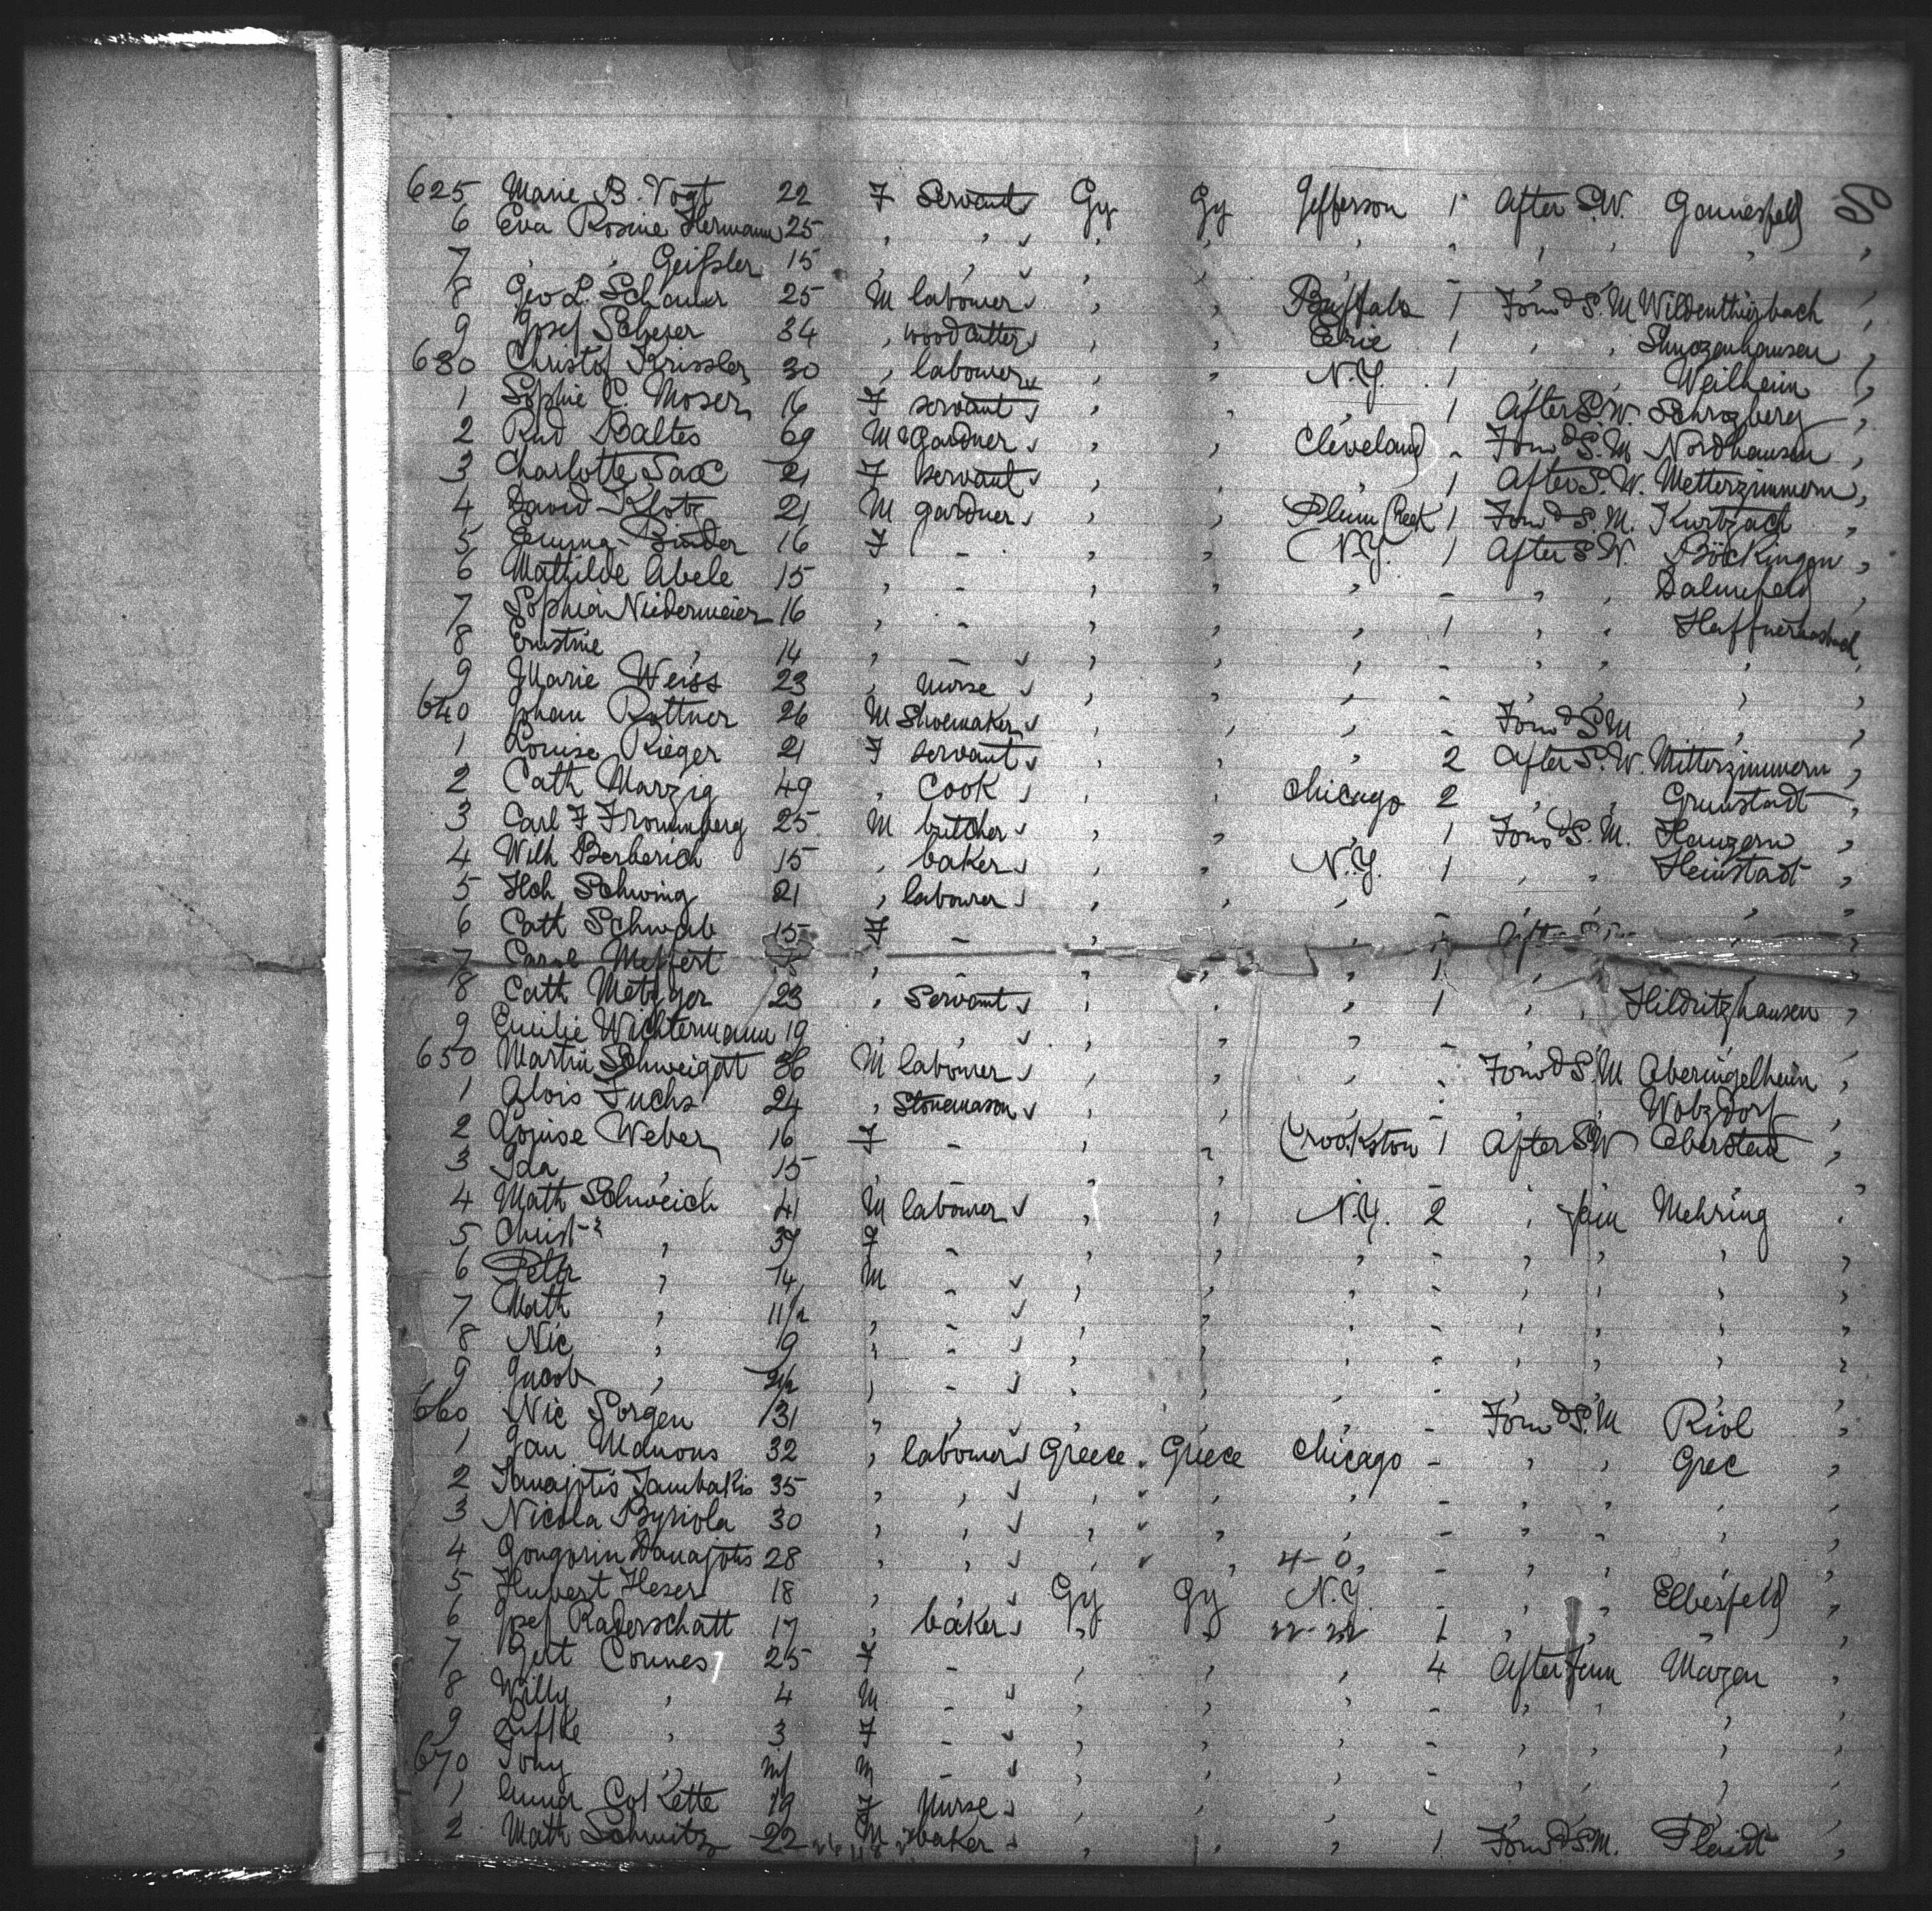 625 Marie B. Vogt 22 F Servant Gy Gy Jefferson 1 After S.W. Gonnesfeld
6 Eva Rosine Hermann 25 , , , , , - , , , ,
7 , , Geißler 15 , , , , , - , , , ,
8 Geo L. Schauer 25 M labourer , , Buffalo 1 Forwd S. M Wildenthierbach ,
9 Josef Scherer 34 , woodcutter , , Erie 1 , , ,
630 Christof Krissler 30 , labourer , , N.Y. 1 , , Weilheim ,
1 Sophie C. Moser 16 F servant , , , 1 After S.W. Schrozberg ,
2 Rud Baltes 69 M Gardner , , Cleveland - Forwd S. M Nordhausen ,
3 Charlotte Sax 21 F servant , , , 1 After S.W. Metterzimmern ,
4 David Klotz 21 M gardner , , Plum Creek 1 Forwd S. M. Kurtzach ,
5 Emma Binder 16 F - , , N.Y. 1 After S.W. Böckingen ,
6 Mathilde Abele 15 , - , , , - , , Dalmfeld ,
7 Sophia Niedermeier 16 , - , , , 1 , , Haffnerhasbach
8 Ernstine , 14 , - , , , - , , , ,
9 Marie Weiss 23 , nurse , , , - , , , ,
640 Johan Rottner 26 M Shoemaker , , , - Forwd S M , ,
1 Louise Rieger 21 F servant , , , 2 After S.W. Mitterzimmern ,
2 Cath Marzig 49 , Cook , , Chicago 2 , , Grunstadt ,
3 Carl F Frommberg 25 M butcher , , , 1 Forwd S. M. ,
4 Wilh Berberich 15 , baker , , N.Y. 1 , , Heinstadt ,
5 Hch Schwing 21 , labourer , , , - , , , ,
6 Cath Schwab 15 F - , , , , ,
7 Carol Meffert , - , , , 1 , , , ,
8 Cath Metzger 23 , Servant , , , 1 , , Hildritzhausen ,
9 Emilie Wichtermann 19 , , , , , - , , , ,
650 Martin Schweigat 36 M labourer , , , - Forwd S. M Oberingelheim ,
1 Alois Fuchs 24 , Stonemason , , , - , , Wobzdorf ,
2 Louise Weber 16 F - , , Crookston 1 After S.W. Oberstein ,
3 Ida , 15 , , , , - , , , ,
4 Math Schweich 41 M labourer , , N.Y. 2 , fam Mehring ,
5 Christ , 37 F - , , , - , , , ,
6 Peter , 14 M - , , , - , , , ,
7 Math , 11 1/2 , - , , , - , , , ,
8 Nic , 9 , - , , , - , , , ,
9 Jacob , 2 1/2 , - , , , - , , , ,
660 Nic Sorgen 31 , , , , , - Forwd S. M Riol ,
1 Jan Manous 32 , labourer Greece Greece Chicago - , , Grec ,
2 Panajotis Tambakis 35 , , , , , - , , , ,
3 Nicola Byriola 30 , , , , , - , , , ,
4 Gongorin Danajotis 28 , , , , 4-0, - , , , ,
5 Hubert Heser 18 , , Gy Gy N.Y. - , , Elberfeld ,
6 Josef Raderschatt 17 , baker , , 1 , , , ,
7 Gert Connes 25 F - , , , 4 After fam Mazen ,
8 Willy , 4 M - , , , - , , , ,
9 , 3 F - , , , - , , , ,
670 Tony , inf M - , , , - , , , ,
1 Anna Col Kette 19 F Nurse , , , , , , ,
2 Math Schmitz 22 M baker , , , 1 Forwd S. M. Plaidt ,